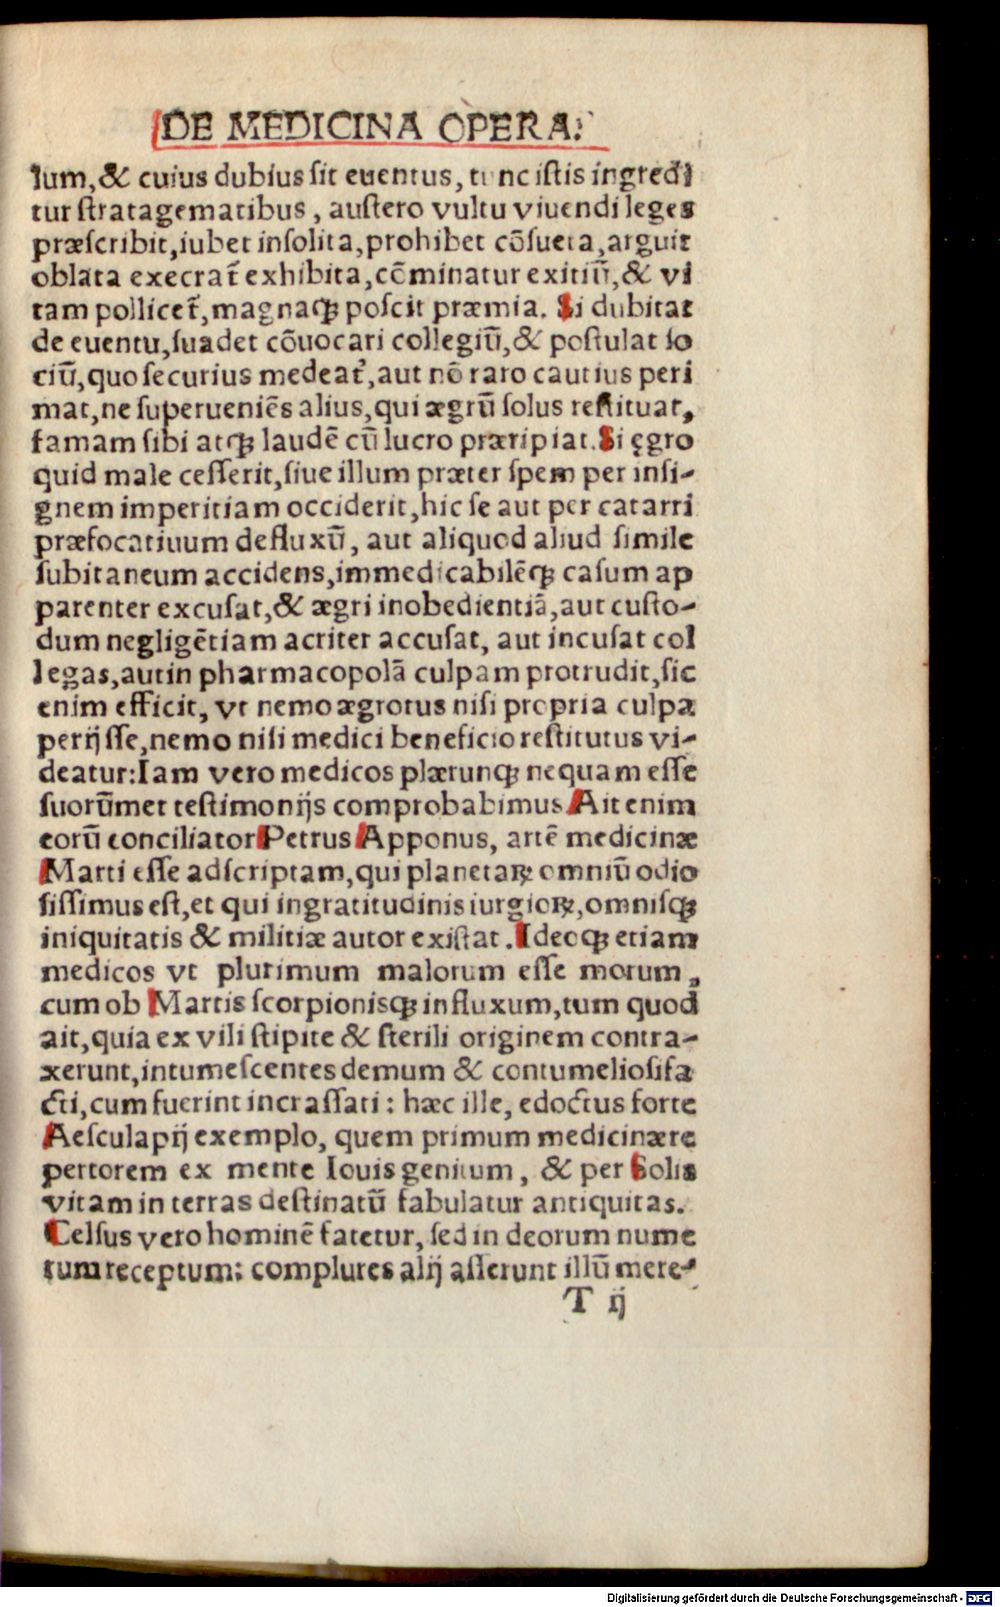 DE MEDICINA OPERA:
lum, & cuius dubius sit euentus, tunc istis ingredi
tur stratagematibus, austero vultu viuendi leges
præscribit, iubet insolita, prohibet cõsueta, arguit
oblata execrat᷑ exhibita, cõminatur exitiũ, & vi
tam pollicet᷑, magnaqꝫ poscit præmia. Si dubitat
de euentu, suadet cõuocari collegiũ, & postulat so
ciũ, quo securius medeat᷑, aut nõ raro cautius peri
mat, ne superueniẽs alius, qui ægrũ solus restituat,
famam sibi atqꝫ laudẽ cũ lucro præripiat. Si ęgro
quid male cesserit, siue illum præter spem per insi-
gnem imperitiam occiderit, hic se aut per catarri
præfocatiuum defluxũ, aut aliquod aliud simile
subitaneum accidens, immedicabilẽqꝫ casum ap
parenter excusat, & ægri inobedientiã, aut custo-
dum negligẽtiam acriter accusat, aut incusat col
legas, aut in pharmacopolã culpam protrudit, sic
enim efficit, vt nemo ægrotus nisi propria culpa
perijsse, nemo nisi medici beneficio restitutus vi-
deatur: Iam vero medicos plærunqꝫ nequam esse
suorũmet testimonijs comprobabimus Ait enim
eorũ conciliator Petrus Apponus, artẽ medicinæ
Marti esse adscriptam, qui planetaꝝ omniũ odio
sissimus est, et qui ingratitudinis iurgioꝝ, omnisqꝫ
iniquitatis & militiæ autor existat. Ideoqꝫ etiam
medicos vt plurimum malorum esse morum,
cum ob Martis scorpionisqꝫ influxum, tum quod
ait, quia ex vili stipite & sterili originem contra-
xerunt, intumescentes demum & contumeliosi fa
cti, cum fuerint incrassati: hæc ille, edoctus forte
Aesculapij exemplo, quem primum medicinæ re
pertorem ex mente Iouis genitum, & per Solis
vitam in terras destinatũ fabulatur antiquitas.
Celsus vero hominẽ fatetur, sed in deorum nume
rum receptum: complures alij asserunt illũ mere-
T ij
Digitalisierung gefördert durch die Deutsche Forschungsgemeinschaft - DFG